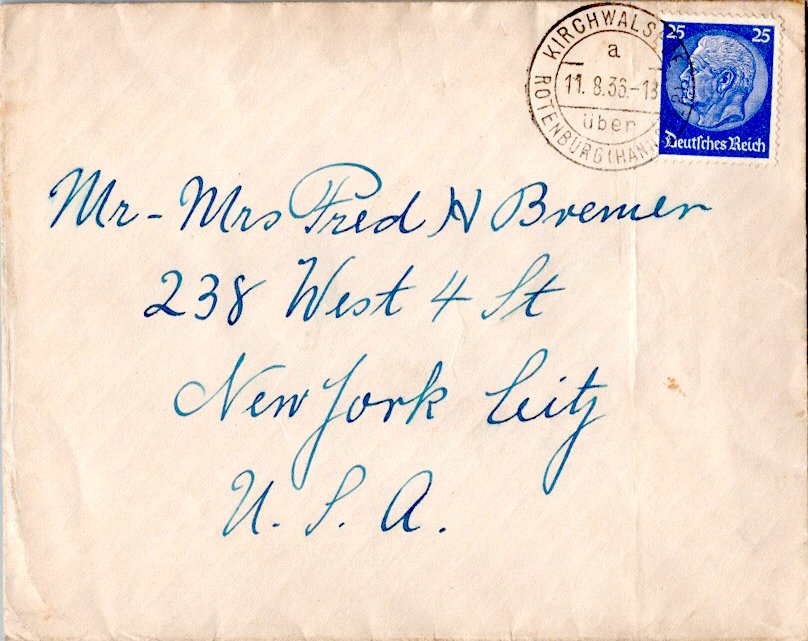 KIRCHWALS
a
11.8.36.-18
über
ROTENBURG (HAN
25 25
Deutsches Reich
Mr - Mrs Fred H Bremer
238 West 4 St
New York City
U. S. A.